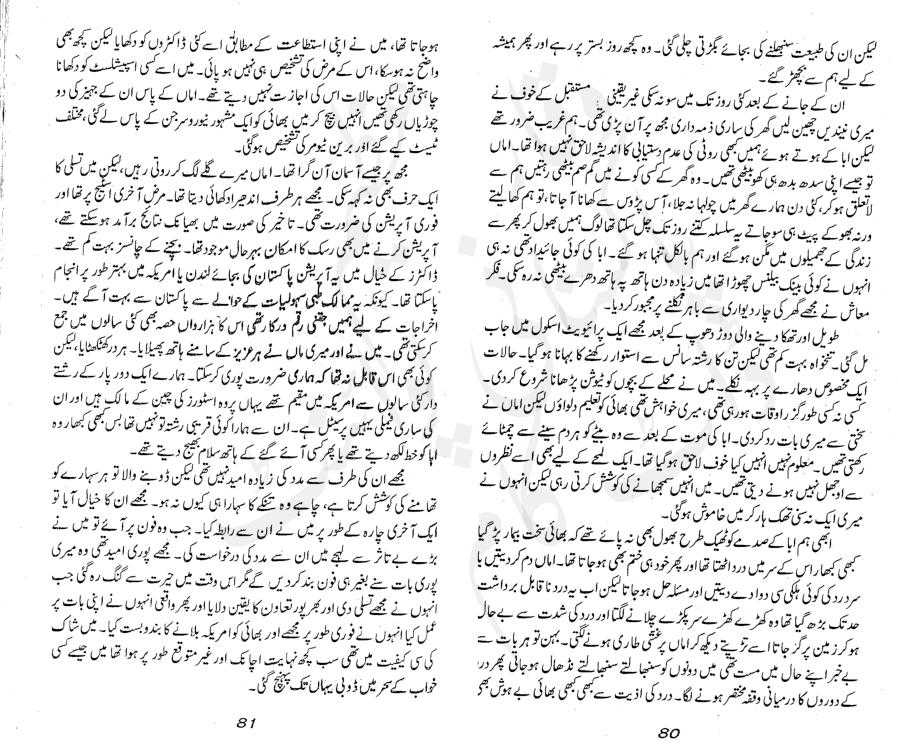 لیکن ان کی طبیعت سنبھلنے کی بجائے بگڑتی چلی گئی۔ وہ کچھ روز بستر پر رہے اور پھر ہمیشہ
کے لیے ہم سے بچھڑ گئے۔
ان کے جانے کے بعد کئی روز تک میں سو نہ سکی غیر یقینی مستقبل کے خوف نے
میری نیندیں چھین لیں گھر کی ساری ذمہ داری مجھ پر آن پڑی تھی۔ ہم غریب ضرور تھے
لیکن ابا کے ہوتے ہوئے ہمیں کبھی روٹی کی عدم دستیابی کا اندیشہ لاحق نہیں ہوا تھا۔ اماں
تو جیسے اپنی سدھ بدھ ہی کھو بیٹھی تھیں۔ وہ گھر کے کسی کونے میں گم صم بیٹھی رہتیں ہم سے
لاتعلق ہو کر، کئی دن ہمارے گھر میں چولہا نہ جلا، آس پڑوس سے کھانا آ جاتا، تو ہم کھا لیتے
ورنہ بھوکے پیٹ ہی سو جاتے یہ سلسلہ کتنے روز تک چل سکتا تھا لوگ ہمیں بھول کر پھر سے
زندگی کے جھمیلوں میں مگن ہو گئے اور ہم بالکل تنہا ہو گئے۔ ابا کی کوئی جائیداد تھی نہ ہی
انہوں نے کوئی بینک بیلنس چھوڑا تھا میں زیادہ دن ہاتھ پہ ہاتھ دھرے بیٹھی نہ رہ سکی۔ فکر
معاش نے مجھے گھر کی چار دیواری سے باہر نکلنے پر مجبور کر دیا۔
طویل اور تھکا دینے والی دوڑ دھوپ کے بعد مجھے ایک پرائیویٹ اسکول میں جاب
مل گئی۔ تنخواہ بہت کم تھی لیکن تن کا رشتہ سانس سے استوار رکھنے کا بہانا ہو گیا۔ حالات
ایک مخصوص دھارے پر بہہ نکلے۔ میں نے محلے کے بچوں کو ٹیوشن پڑھانا شروع کر دی۔
کسی نہ کسی طور گزر اوقات ہو رہی تھی، میری خواہش تھی بھائی کو تعلیم دلواؤں لیکن اماں نے
سختی سے میری بات رد کر دی۔ ابا کی موت کے بعد سے وہ بیٹے کو ہر دم سینے سے چمٹائے
رکھتی تھیں۔ معلوم نہیں انہیں کیا خوف لاحق ہو گیا تھا۔ ایک لمحے کے لیے بھی اسے نظروں
سے اوجھل نہیں ہونے دیتی تھیں۔ میں انہیں سمجھانے کی کوشش کرتی رہی لیکن انہوں نے
میری ایک نہ سنی تھک ہار کر میں خاموش ہو گئی۔
ابھی ہم ابا کے صدمے کو ٹھیک طرح بھول بھی نہ پائے تھے کہ بھائی سخت بیمار پڑ گیا
کبھی کبھار اس کے سر میں درد اٹھتا تھا اور پھر خود ہی ختم بھی ہو جاتا تھا۔ اماں دم کر دیتیں یا
سر درد کی کوئی ہلکی سی دوا دے دیتیں اور مسئلہ حل ہو جاتا لیکن اب یہ درد ناقابل برداشت
حد تک بڑھ گیا تھا وہ کھڑے کھڑے سر پکڑے چلانے لگتا اور درد کی شدت سے بے حال
ہو کر زمین پر گر جاتا اسے تڑپتے دیکھ کر اماں پر غشی طاری ہونے لگتی۔ بہن تو ہر بات سے
بے خبر اپنے حال میں مست تھی میں دونوں کو سنبھالتے سنبھالتے نڈھال ہو جاتی پھر درد
کے دوروں کا درمیانی وقفہ مختصر ہونے لگا۔ درد کی اذیت سے کبھی کبھی بھائی بے ہوش بھی
80
ہو جاتا تھا، میں نے اپنی استطاعت کے مطابق اسے کئی ڈاکٹروں کو دکھایا لیکن کچھ بھی
واضح نہ ہو سکا، اس کے مرض کی تشخیص ہی نہیں ہو پائی۔ میں اسے کسی اسپیشلسٹ کو دکھانا
چاہتی تھی لیکن حالات اس کی اجازت نہیں دیتے تھے۔ اماں کے پاس ان کے جہیز کی دو
چوڑیاں رکھی تھیں انہیں بیچ کر میں بھائی کو ایک مشہور نیورو سرجن کے پاس لے گئی، مختلف
ٹیسٹ کیے گئے اور برین ٹیومر کی تشخیص ہو گئی۔
مجھ پر جیسے آسمان آن گرا تھا۔ اماں میرے گلے لگ کر روتی رہیں، لیکن میں تسلی کا
ایک حرف بھی نہ کہہ سکی۔ مجھے ہر طرف اندھیرا دکھائی دیتا تھا۔ مرض آخری اسٹیج پر تھا اور
فوری آپریشن کی ضرورت تھی۔ تاخیر کی صورت میں بھیانک نتائج برآمد ہو سکتے تھے،
آپریشن کرنے میں بھی رسک کا امکان بہرحال موجود تھا۔ بچنے کے چانسز بہت کم تھے۔
ڈاکٹرز کے خیال میں یہ آپریشن پاکستان کی بجائے لندن یا امریکہ میں بہتر طور پر انجام
پا سکتا تھا۔ کیونکہ یہ ممالک طبی سہولیات کے حوالے سے پاکستان سے بہت آگے ہیں۔
اخراجات کے لیے ہمیں جتنی رقم درکار تھی اس کا ہزارواں حصہ بھی کئی سالوں میں جمع
کر سکتی تھی۔ میں نے اور میری ماں نے ہر عزیز کے سامنے ہاتھ پھیلایا۔ ہر در کھٹکھٹایا، لیکن
کوئی بھی اس قابل نہ تھا کہ ہماری ضرورت پوری کر سکتا۔ ہمارے ایک دور پار کے رشتے
دار کئی سالوں سے امریکہ میں مقیم تھے یہاں پر وہ اسٹورز کی چین کے مالک ہیں اور ان
کی ساری فیملی یہیں پر سیٹل ہے۔ ان سے ہمارا کوئی قریبی رشتہ تو نہیں تھا بس کبھی کبھار وہ
ابا کو خط لکھ دیتے تھے یا پھر کسی آئے گئے کے ہاتھ سلام بھیج دیتے تھے۔
مجھے ان کی طرف سے مدد کی زیادہ امید نہیں تھی لیکن ڈوبنے والا تو ہر سہارے کو
تھامنے کی کوشش کرتا ہے، چاہے وہ تنکے کا سہارا ہی کیوں نہ ہو۔ مجھے ان کا خیال آیا تو
ایک آخری چارہ کے طور پر میں نے ان سے رابطہ کیا۔ جب وہ فون پر آئے تو میں نے
بڑے بے تاثر سے لہجے میں ان سے مدد کی درخواست کی۔ مجھے پوری امید تھی وہ میری
پوری بات سنے بغیر ہی فون بند کر دیں گے مگر اس وقت میں حیرت سے گنگ رہ گئی جب
انہوں نے مجھے تسلی دی اور بھرپور تعاون کا یقین دلایا اور پھر واقعی انہوں نے اپنی بات پر
عمل کیا انہوں نے فوری طور پر مجھے اور بھائی کو امریکہ بلانے کا بندوبست کیا۔ میں شاک
کی سی کیفیت میں تھی سب کچھ نہایت اچانک اور غیر متوقع طور پر ہوا تھا میں جیسے کسی
خواب کے سحر میں ڈوبی یہاں تک پہنچ گئی۔
81